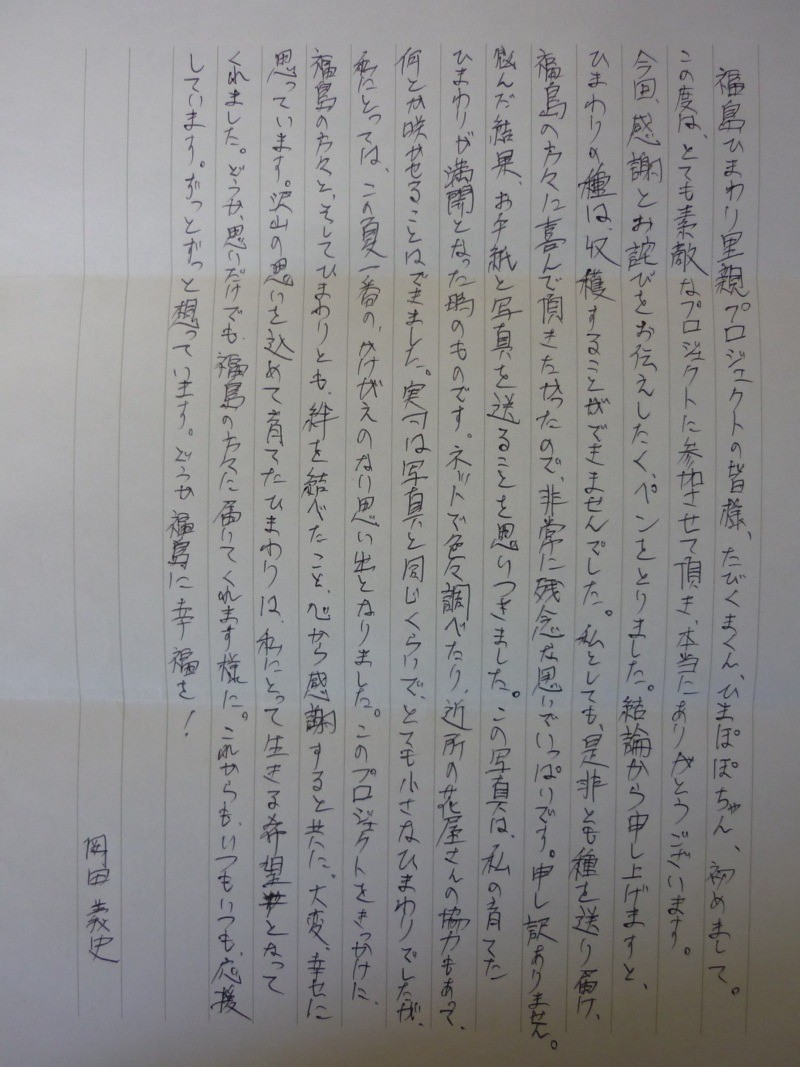 福島ひまわり里親プロジェクトの皆様、たびくまくん、ひまぽぽちゃん、初めまして。
この度は、とても素敵なプロジェクトに参加させて頂き、本当にありがとうございます。
今回、感謝とお詫びをお伝えしたく、ペンをとりました。結論から申し上げますと、
ひまわりの種は、収穫することができませんでした。私としても、是非とも種を送り届け、
福島の方々に喜んで頂きたかったので、非常に残念な思いでいっぱいです。申し訳ありません。
悩んだ結果、お手紙と写真を送ることを思いつきました。この写真は、私の育てた
ひまわりが満開となった時のものです。ネットで色々調べたり、近所の花屋さんの協力もあって、
何とか咲かせることはできました。実寸は写真と同じくらいで、とても小さなひまわりでしたが、
私にとっては、この夏一番の、かけがえのない思い出となりました。このプロジェクトをきっかけに、
福島の方々と、そしてひまわりとも、絆を結べたこと、心から感謝すると共に、大変、幸せに
思っています。沢山の思いを込めて育てたひまわりは、私にとって生きる希望となって
くれました。どうか、思いだけでも、福島の方々に届いてくれます様に。これからも、いつもいつも、応援
しています。ずっとずっと想っています。どうか福島に幸福を！
岡田義史